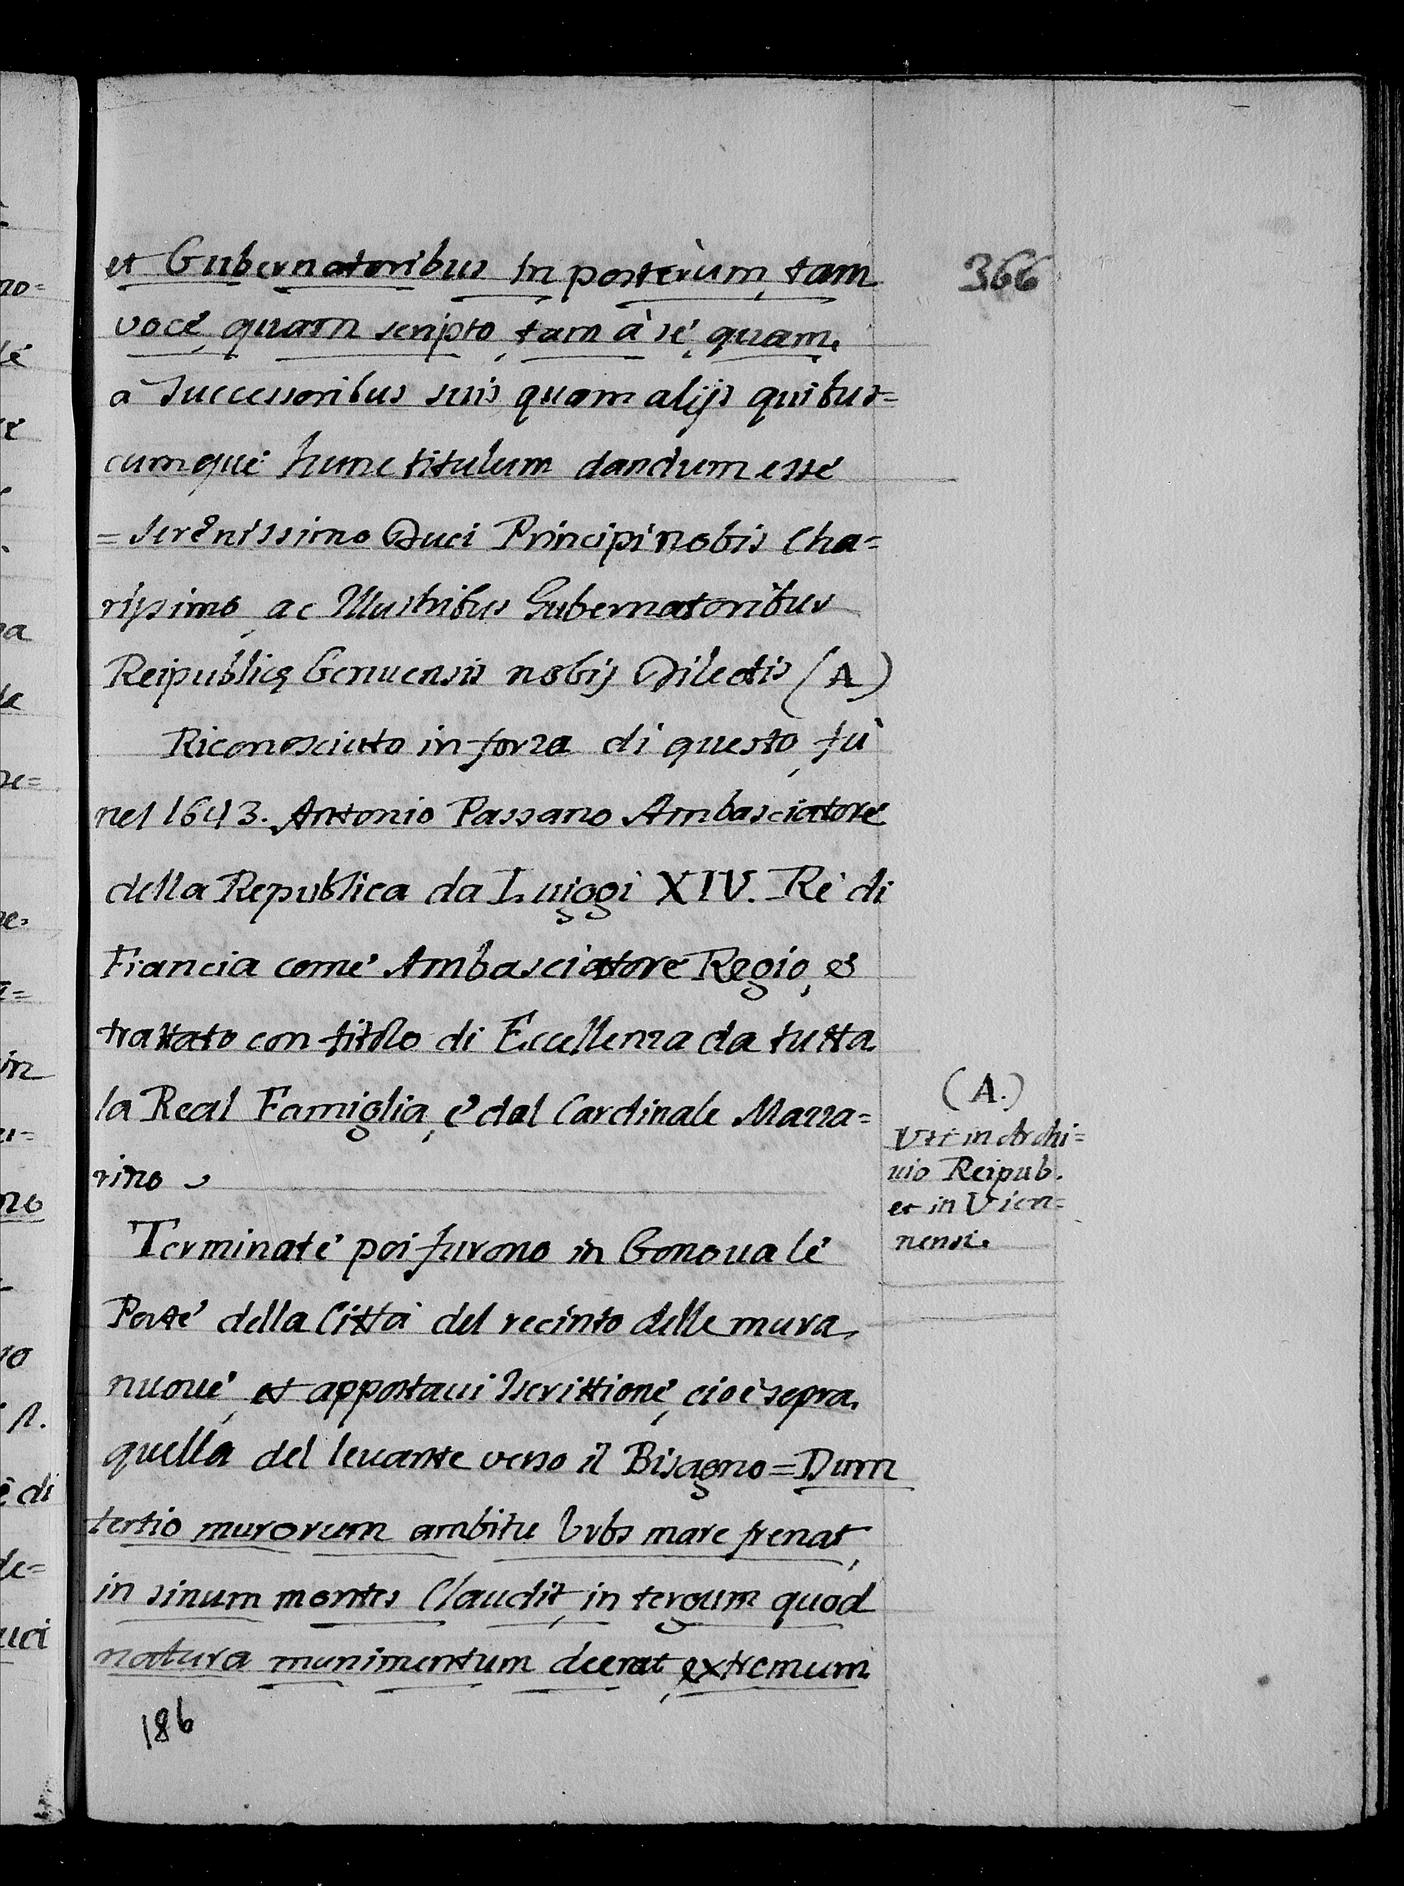 366
et Gubernatoribus in posterùm, tam
vocé, quam scripto, tam à sé, quam,
a Successoribus suis quam alijs quibus=
cumqué hunc titulum dandum essé
= Serenissimo Duci Principi nobis Cha=
rissimo, ac Illustribus Gubernatoribus
Reipublicę Genuensis nobis Dilectis (A)
Riconosciuto in forza di questo, fù
nel 1643. Antonio Passano Ambasciatoré
della Republica da Luiggi XIV. Ré di
Francia comé Ambasciatoré Regio, é
trattato con titolo di Eccellenza da tutta
la Real Famiglia, é dal Cardinale Mazza=
rino
Terminaté poi furono in Genoua lé
Porté della Città del recinto delle mura,
nuoué, et apportaui Iscrittioné, cioè sopra,
quella del leuante verso il Bisagno = Dum
tertio murorum ambitu Vrbs mare frenat,
in sinum montes Claudit, in tergum quod
natura munimentum deerat, extremum
(A.)
Vt in Archi=
uio Reipub.
et in Vien=
nensi.
186